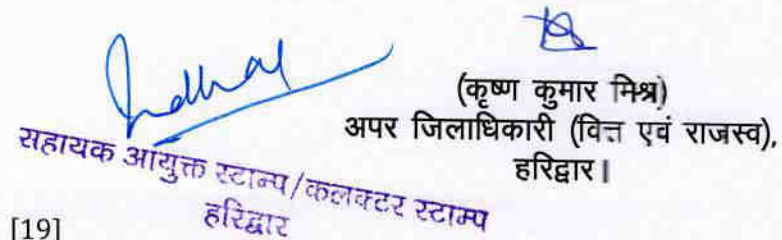 (कृष्ण कुमार मिश्र)
अपर जिलाधिकारी (वित्त एवं राजस्व),
हरिद्वार।
सहायक आयुक्त स्टाम्प/कलक्टर स्टाम्प
हरिद्वार
[19]